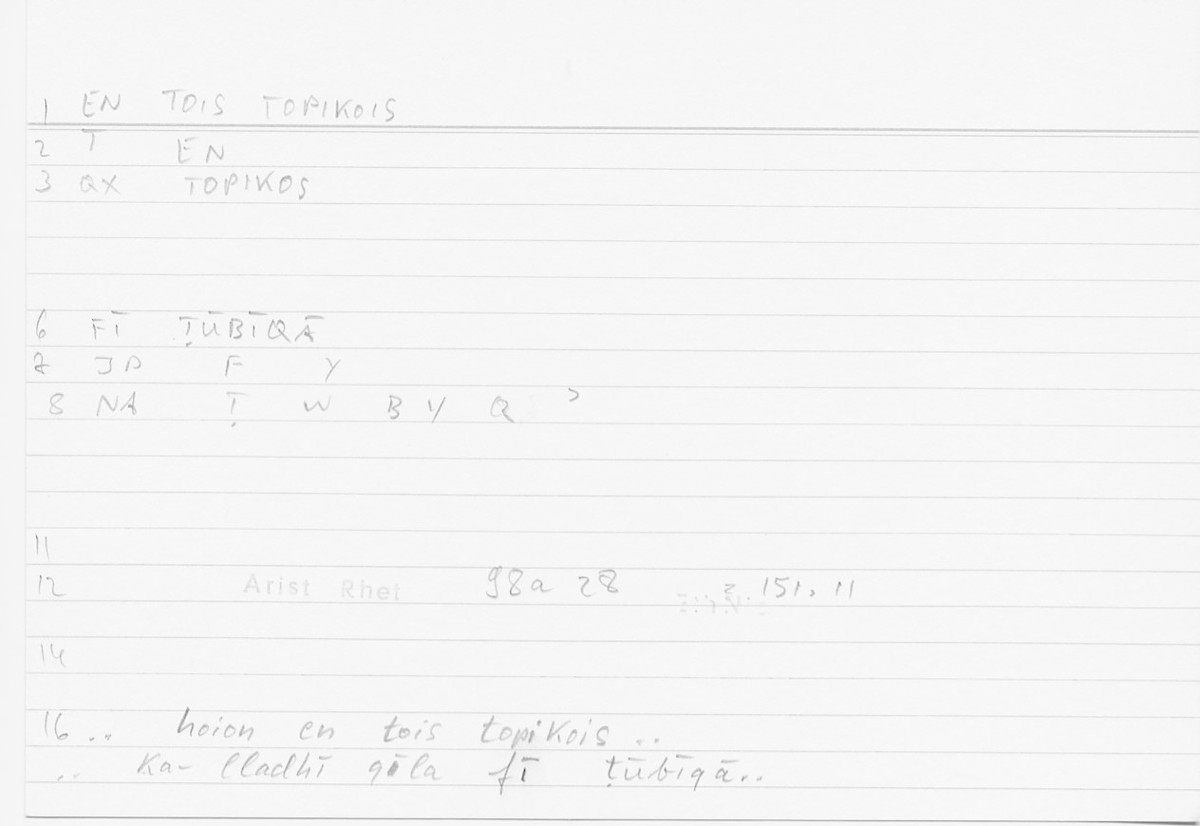 1 EN TOIS TOPIKOIS
2 T EN
3 QX TOPIKOS
6 FĪ ṬŪBĪQĀ
7 JP F Y
8 NA Ṭ W B Y Q ʾ
11
12 Arist Rhet 98a 28 151, 11
14
16 .. hoion en tois topikois ..
.. ka- lladhī qīla fī ṭūbīqā..